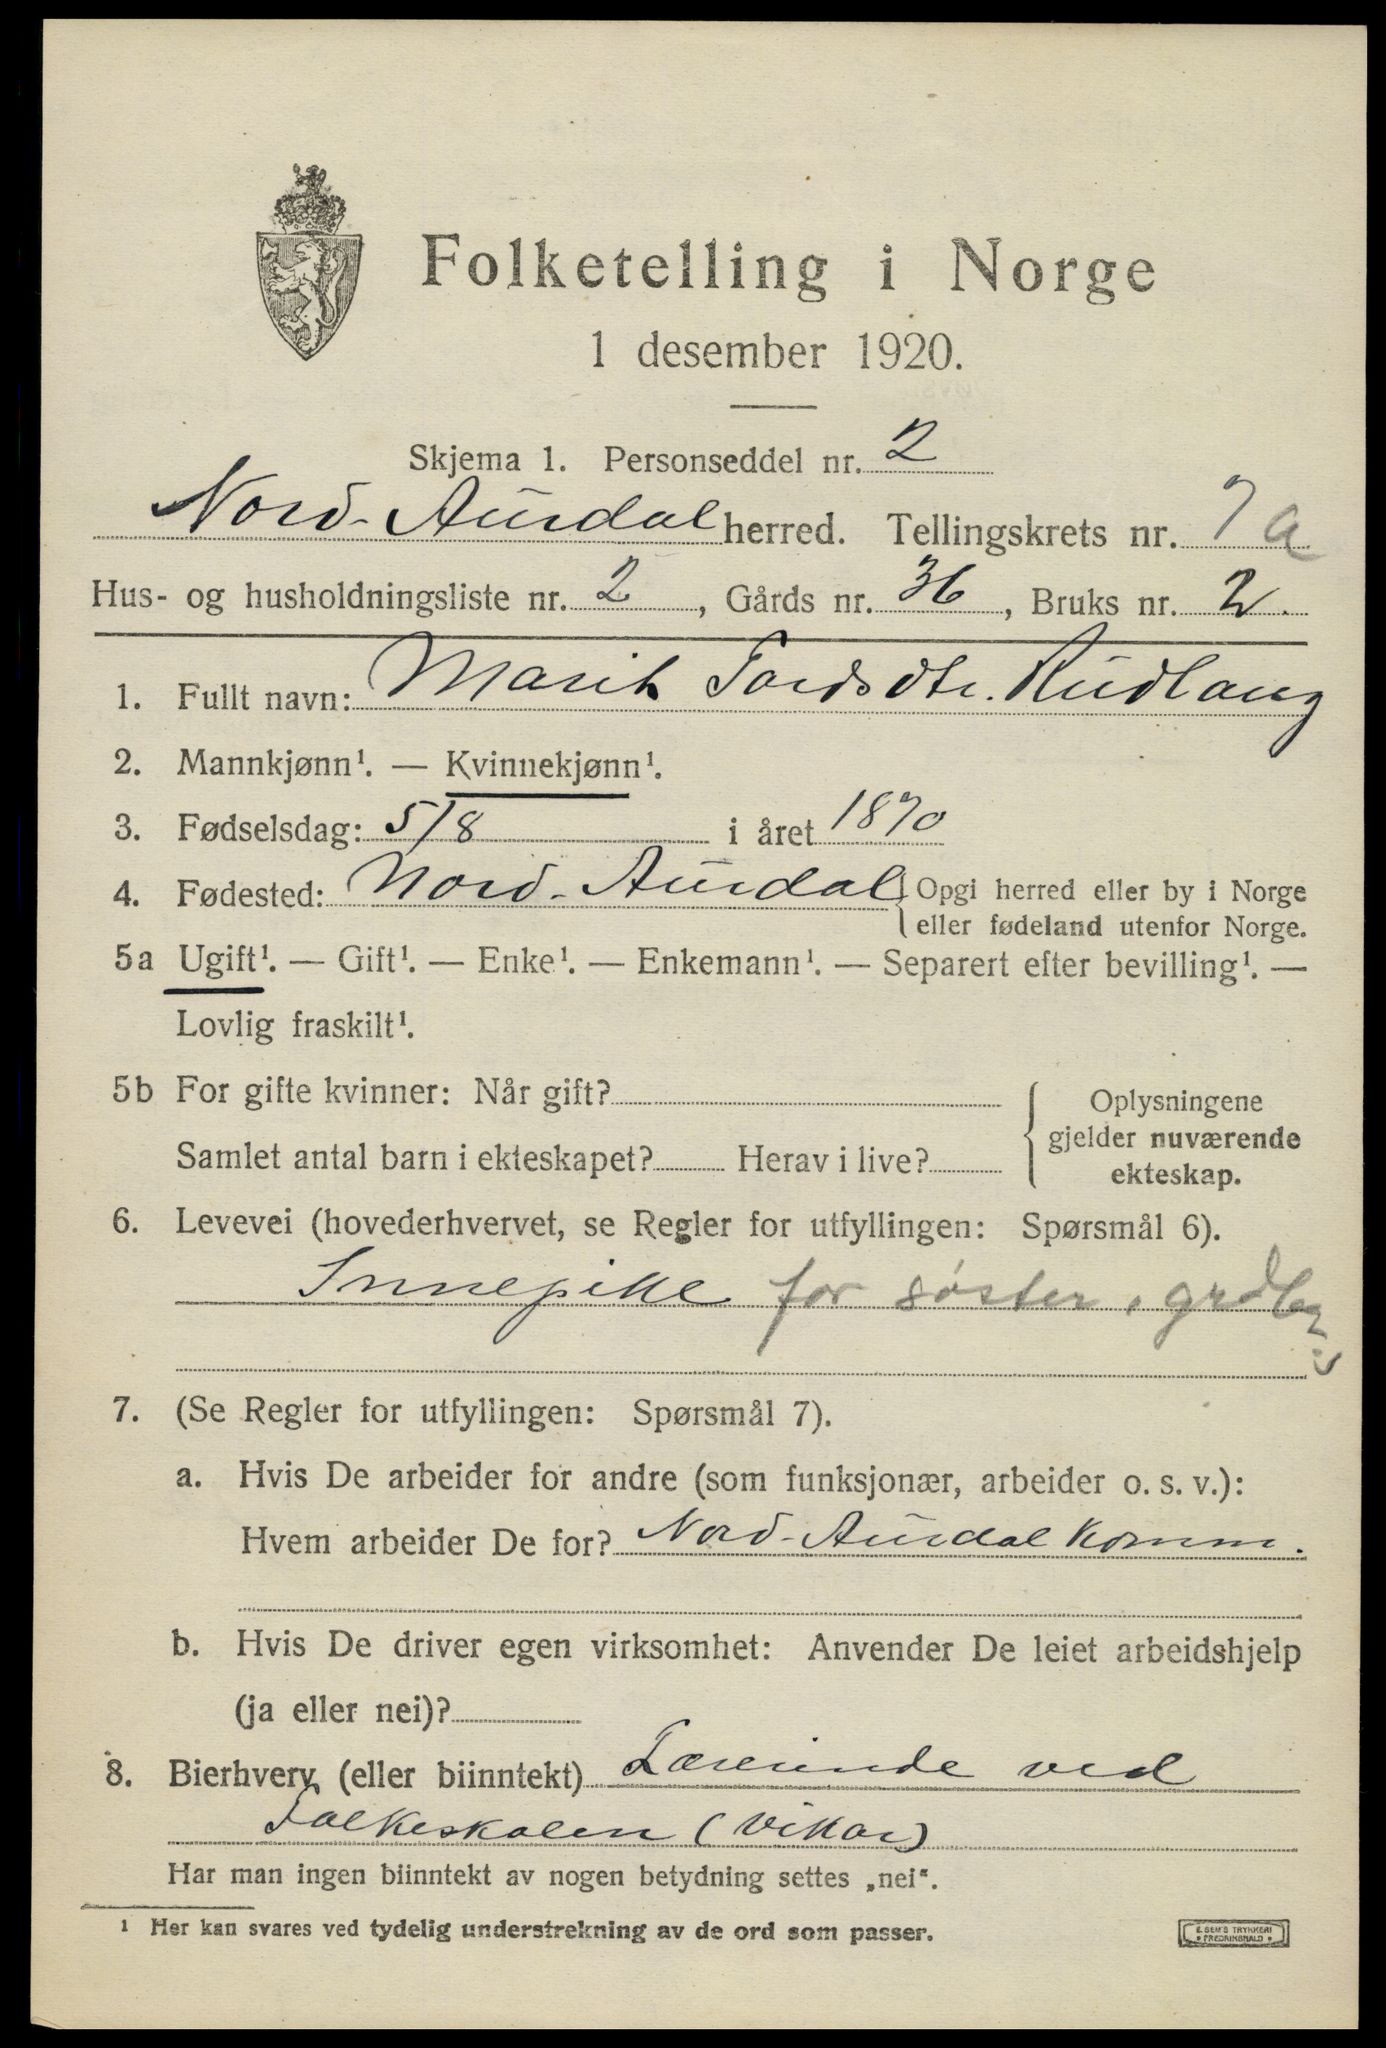 Folketelling i Norge
1 desember 1920.
Skjema 1. Personseddel nr. 2
Nord-Aurdal herred. Tellingskrets nr. 7a
Hus- og husholdningsliste nr. 2, Gårds nr. 36, Bruks nr. 2.
1. Fullt navn: Marit Tordsdtr. Rudlang
2. Mannkjønn¹. — Kvinnekjønn¹.
3. Fødselsdag: 5/8 i året 1870
4. Fødested: Nord-Aurdal { Opgi herred eller by i Norge
eller fødeland utenfor Norge.
5a Ugift¹. — Gift¹. — Enke¹. — Enkemann¹. — Separert efter bevilling¹. —
Lovlig fraskilt¹.
5b For gifte kvinner: Når gift?
Samlet antal barn i ekteskapet? Herav i live?
Oplysningene
gjelder nuværende
ekteskap.
6. Levevei (hovederhvervet, se Regler for utfyllingen: Spørsmål 6).
Innepike for søster,
7. (Se Regler for utfyllingen: Spørsmål 7).
a. Hvis De arbeider for andre (som funksjonær, arbeider o. s. v.):
Hvem arbeider De for? Nord-Aurdal Komm.
b. Hvis De driver egen virksomhet: Anvender De leiet arbeidshjelp
(ja eller nei)?
8. Bierhverv (eller biinntekt) Lærerinde ved
Folkeskolen (vikar)
Har man ingen biinntekt av nogen betydning settes „nei“.
¹ Her kan svares ved tydelig understrekning av de ord som passer.
E. SEM'S TRYKKERI
• FREDRIKSHALD •